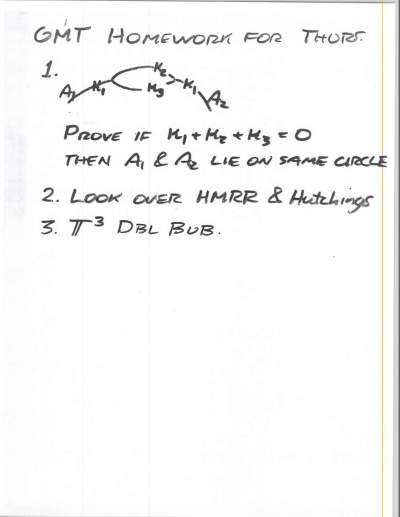 GMT HOMEWORK FOR THURS.
1.
A1 K1 K2 K3 K1 A2
PROVE IF K1 + K2 + K3 = 0
THEN A1 & A2 LIE ON SAME CIRCLE
2. LOOK OVER HMRR & Hutchings
3. T³ DBL BUB.